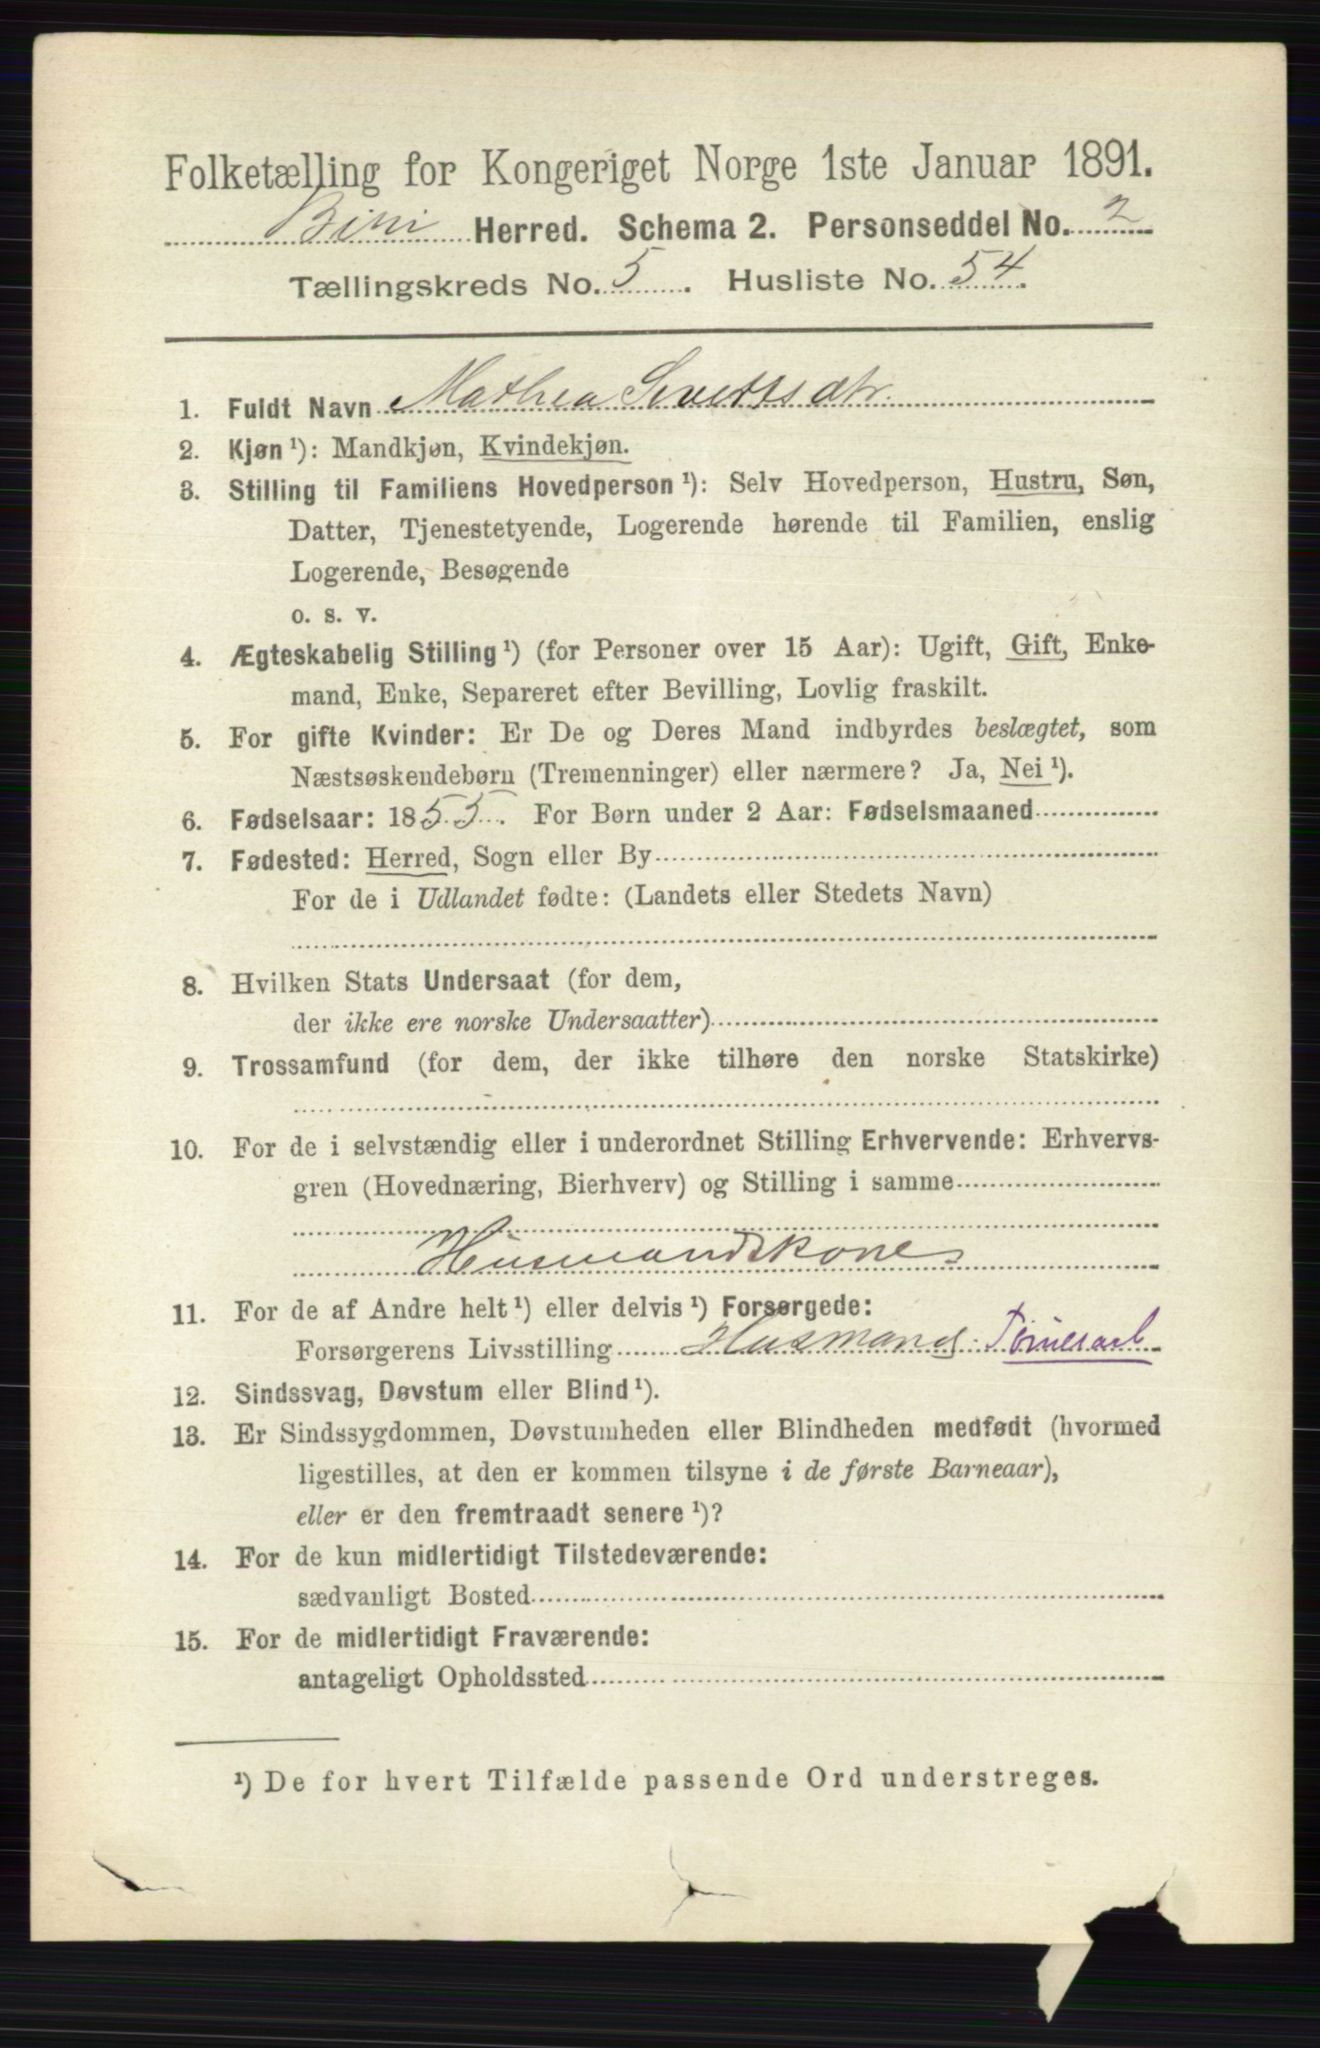 Folketælling for Kongeriget Norge 1ste Januar 1891.
Biri Herred. Schema 2. Personseddel No. 2
Tællingskreds No. 5. Husliste No. 54.
1. Fuldt Navn Mathea Sivertsdtr.
2. Kjøn ¹): Mandkjøn, Kvindekjøn.
3. Stilling til Familiens Hovedperson ¹): Selv Hovedperson, Hustru, Søn,
Datter, Tjenestetyende, Logerende hørende til Familien, enslig
Logerende, Besøgende
o. s. v.
4. Ægteskabelig Stilling ¹) (for Personer over 15 Aar): Ugift, Gift, Enke-
mand, Enke, Separeret efter Bevilling, Lovlig fraskilt.
5. For gifte Kvinder: Er De og Deres Mand indbyrdes beslægtet, som
Næstsøskendebørn (Tremenninger) eller nærmere? Ja, Nei ¹).
6. Fødselsaar: 1855. For Børn under 2 Aar: Fødselsmaaned
7. Fødested: Herred, Sogn eller By
For de i Udlandet fødte: (Landets eller Stedets Navn)
8. Hvilken Stats Undersaat (for dem,
der ikke ere norske Undersaatter)
9. Trossamfund (for dem, der ikke tilhøre den norske Statskirke)
10. For de i selvstændig eller i underordnet Stilling Erhvervende: Erhvervs-
gren (Hovednæring, Bierhverv) og Stilling i samme
Husmandskone
11. For de af Andre helt ¹) eller delvis ¹) Forsørgede:
Forsørgerens Livsstilling Husmand
12. Sindssvag, Døvstum eller Blind ¹).
13. Er Sindssygdommen, Døvstumheden eller Blindheden medfødt (hvormed
ligestilles, at den er kommen tilsyne i de første Barneaar),
eller er den fremtraadt senere ¹)?
14. For de kun midlertidigt Tilstedeværende:
sædvanligt Bosted
15. For de midlertidigt Fraværende:
antageligt Opholdssted
¹) De for hvert Tilfælde passende Ord understreges.